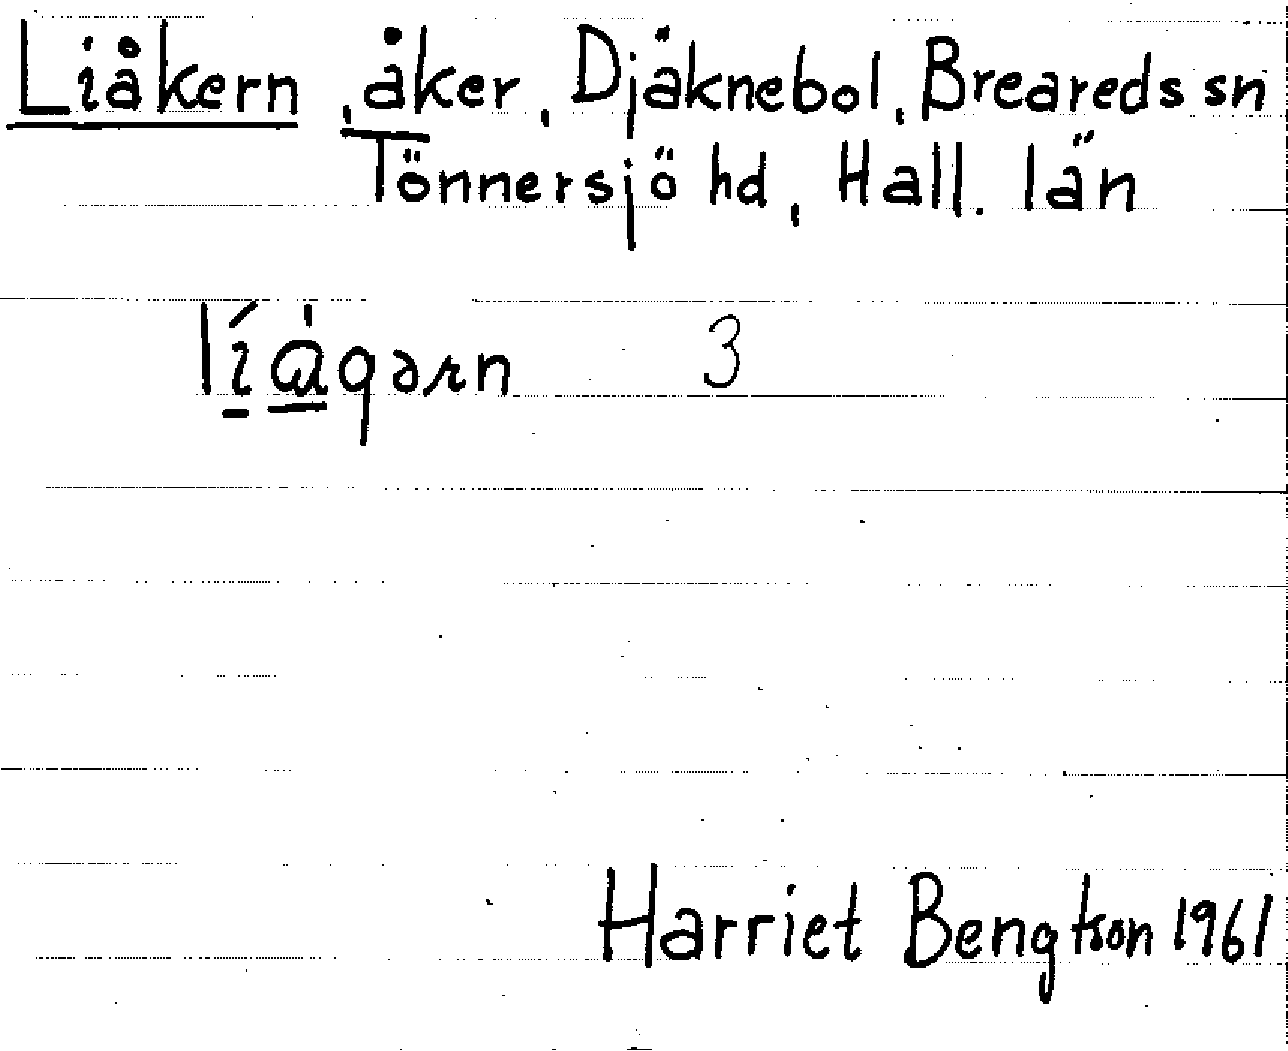 Liåkern, åker, Djäknebol, Breareds sn
Tönnersjö hd, Hall. län
3
Harriet Bengtson 1961